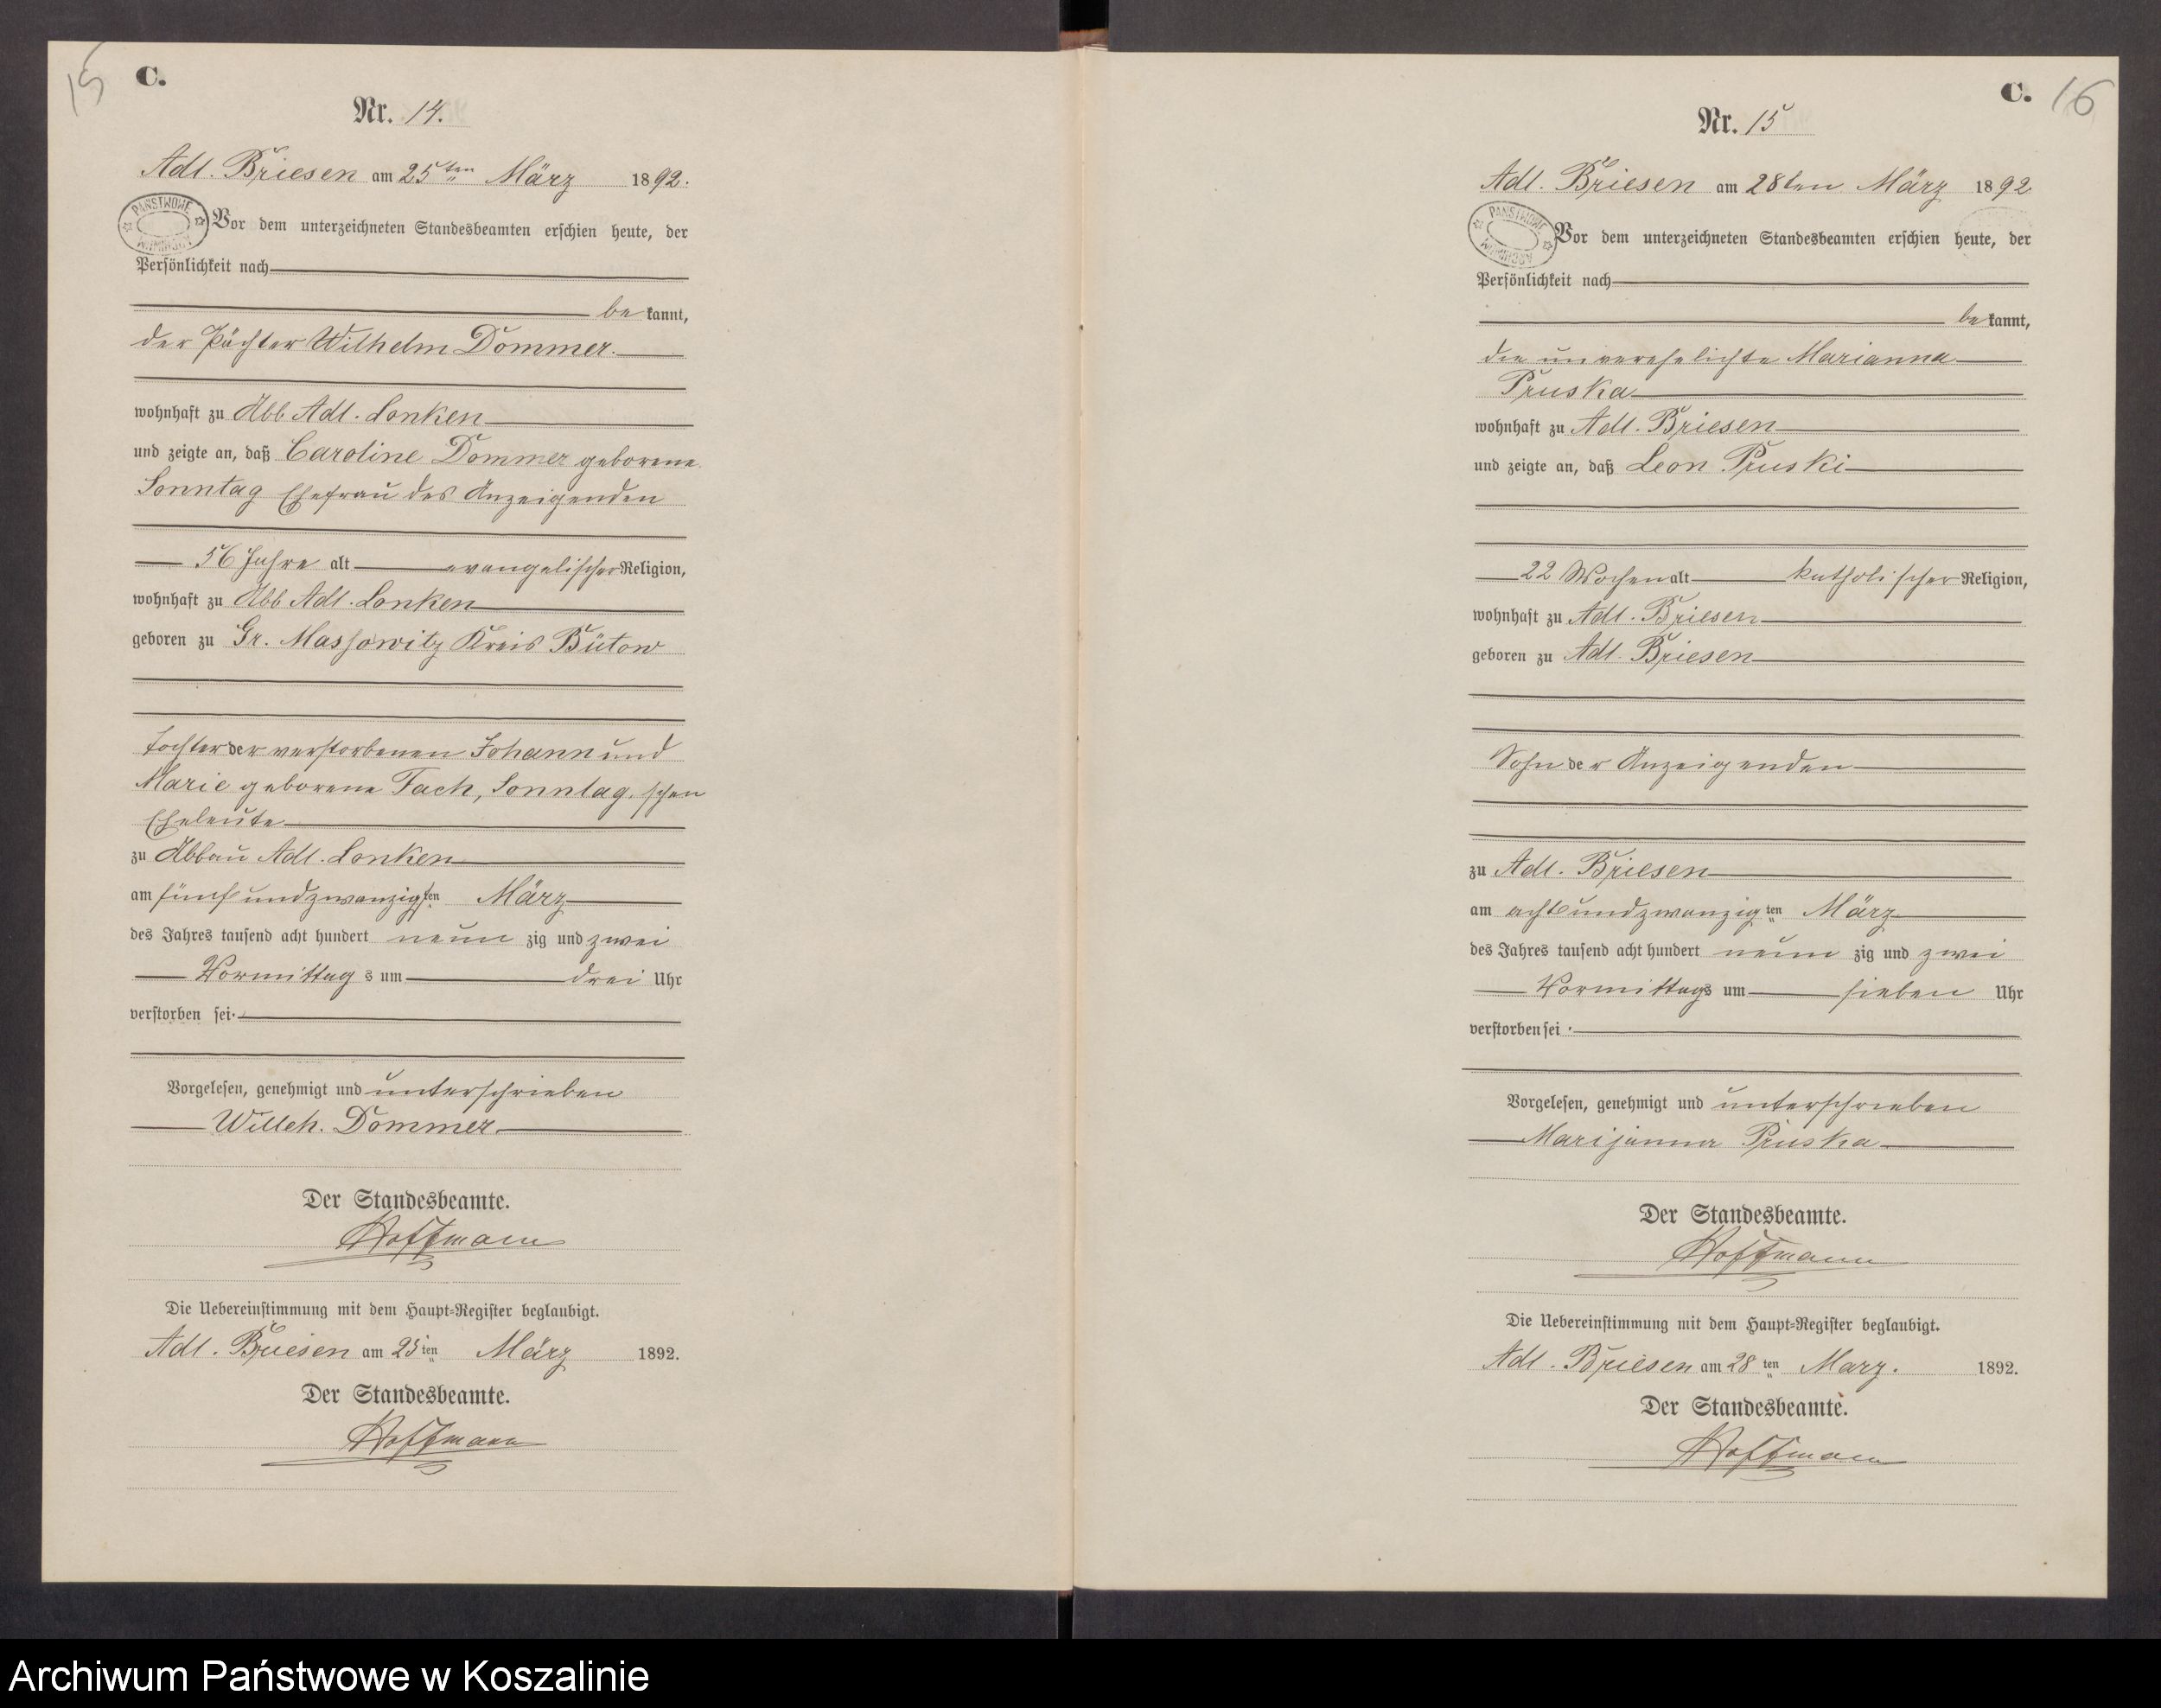 15
C.
Nr. 14.
Adl. Briesen am 25ten März 1892.
PAŃSTWOWE
ARCHIWUM
Vor dem unterzeichneten Standesbeamten erschien heute, der
Persönlichkeit nach
be kannt,
der Pächter Wilhelm Dommer.
wohnhaft zu Abb Adl. Lonken
und zeigte an, daß Caroline Dommer geborene
Sonntag Ehefrau des Anzeigenden
56 Jahre alt evangelischer Religion,
wohnhaft zu Abb Adl. Lonken
geboren zu Gr. Massowitz Kreis Bütow
Tochter der verstorbenen Johann und
Marie geborene Tach, Sonntag.schen
Eheleute
zu Abbau Adl. Lonken
am fünfundzwanzigsten März
des Jahres tausend acht hundert neun zig und zwei
Vormittag s um drei Uhr
verstorben sei.
Vorgelesen, genehmigt und unterschrieben
Willeh. Dommer
Der Standesbeamte.
Hoffmann
Die Uebereinstimmung mit dem Haupt-Register beglaubigt.
Adl. Briesen am 25 ten März 1892.
Der Standesbeamte.
Hoffmann
C. 16
Nr. 15
Adl. Briesen am 28ten März 1892
PAŃSTWOWE
ARCHIWUM
Vor dem unterzeichneten Standesbeamten erschien heute, der
Persönlichkeit nach
be kannt,
die unverehelichte Marianna
Pruska
wohnhaft zu Adl. Briesen
und zeigte an, daß Leon Pruski
22 Wochen alt katholischer Religion,
wohnhaft zu Adl. Briesen
geboren zu Adl. Briesen
Sohn der Anzeigenden
zu Adl. Briesen
am achtundzwanzig ten März
des Jahres tausend acht hundert neun zig und zwei
Vormittags um sieben Uhr
verstorben sei.
Vorgelesen, genehmigt und unterschrieben
Marijanna Pruska
Der Standesbeamte.
Hoffmann
Die Uebereinstimmung mit dem Haupt-Register beglaubigt.
Adl. Briesen am 28 ten Marz. 1892.
Der Standesbeamte.
Hoffmann
Archiwum Państwowe w Koszalinie